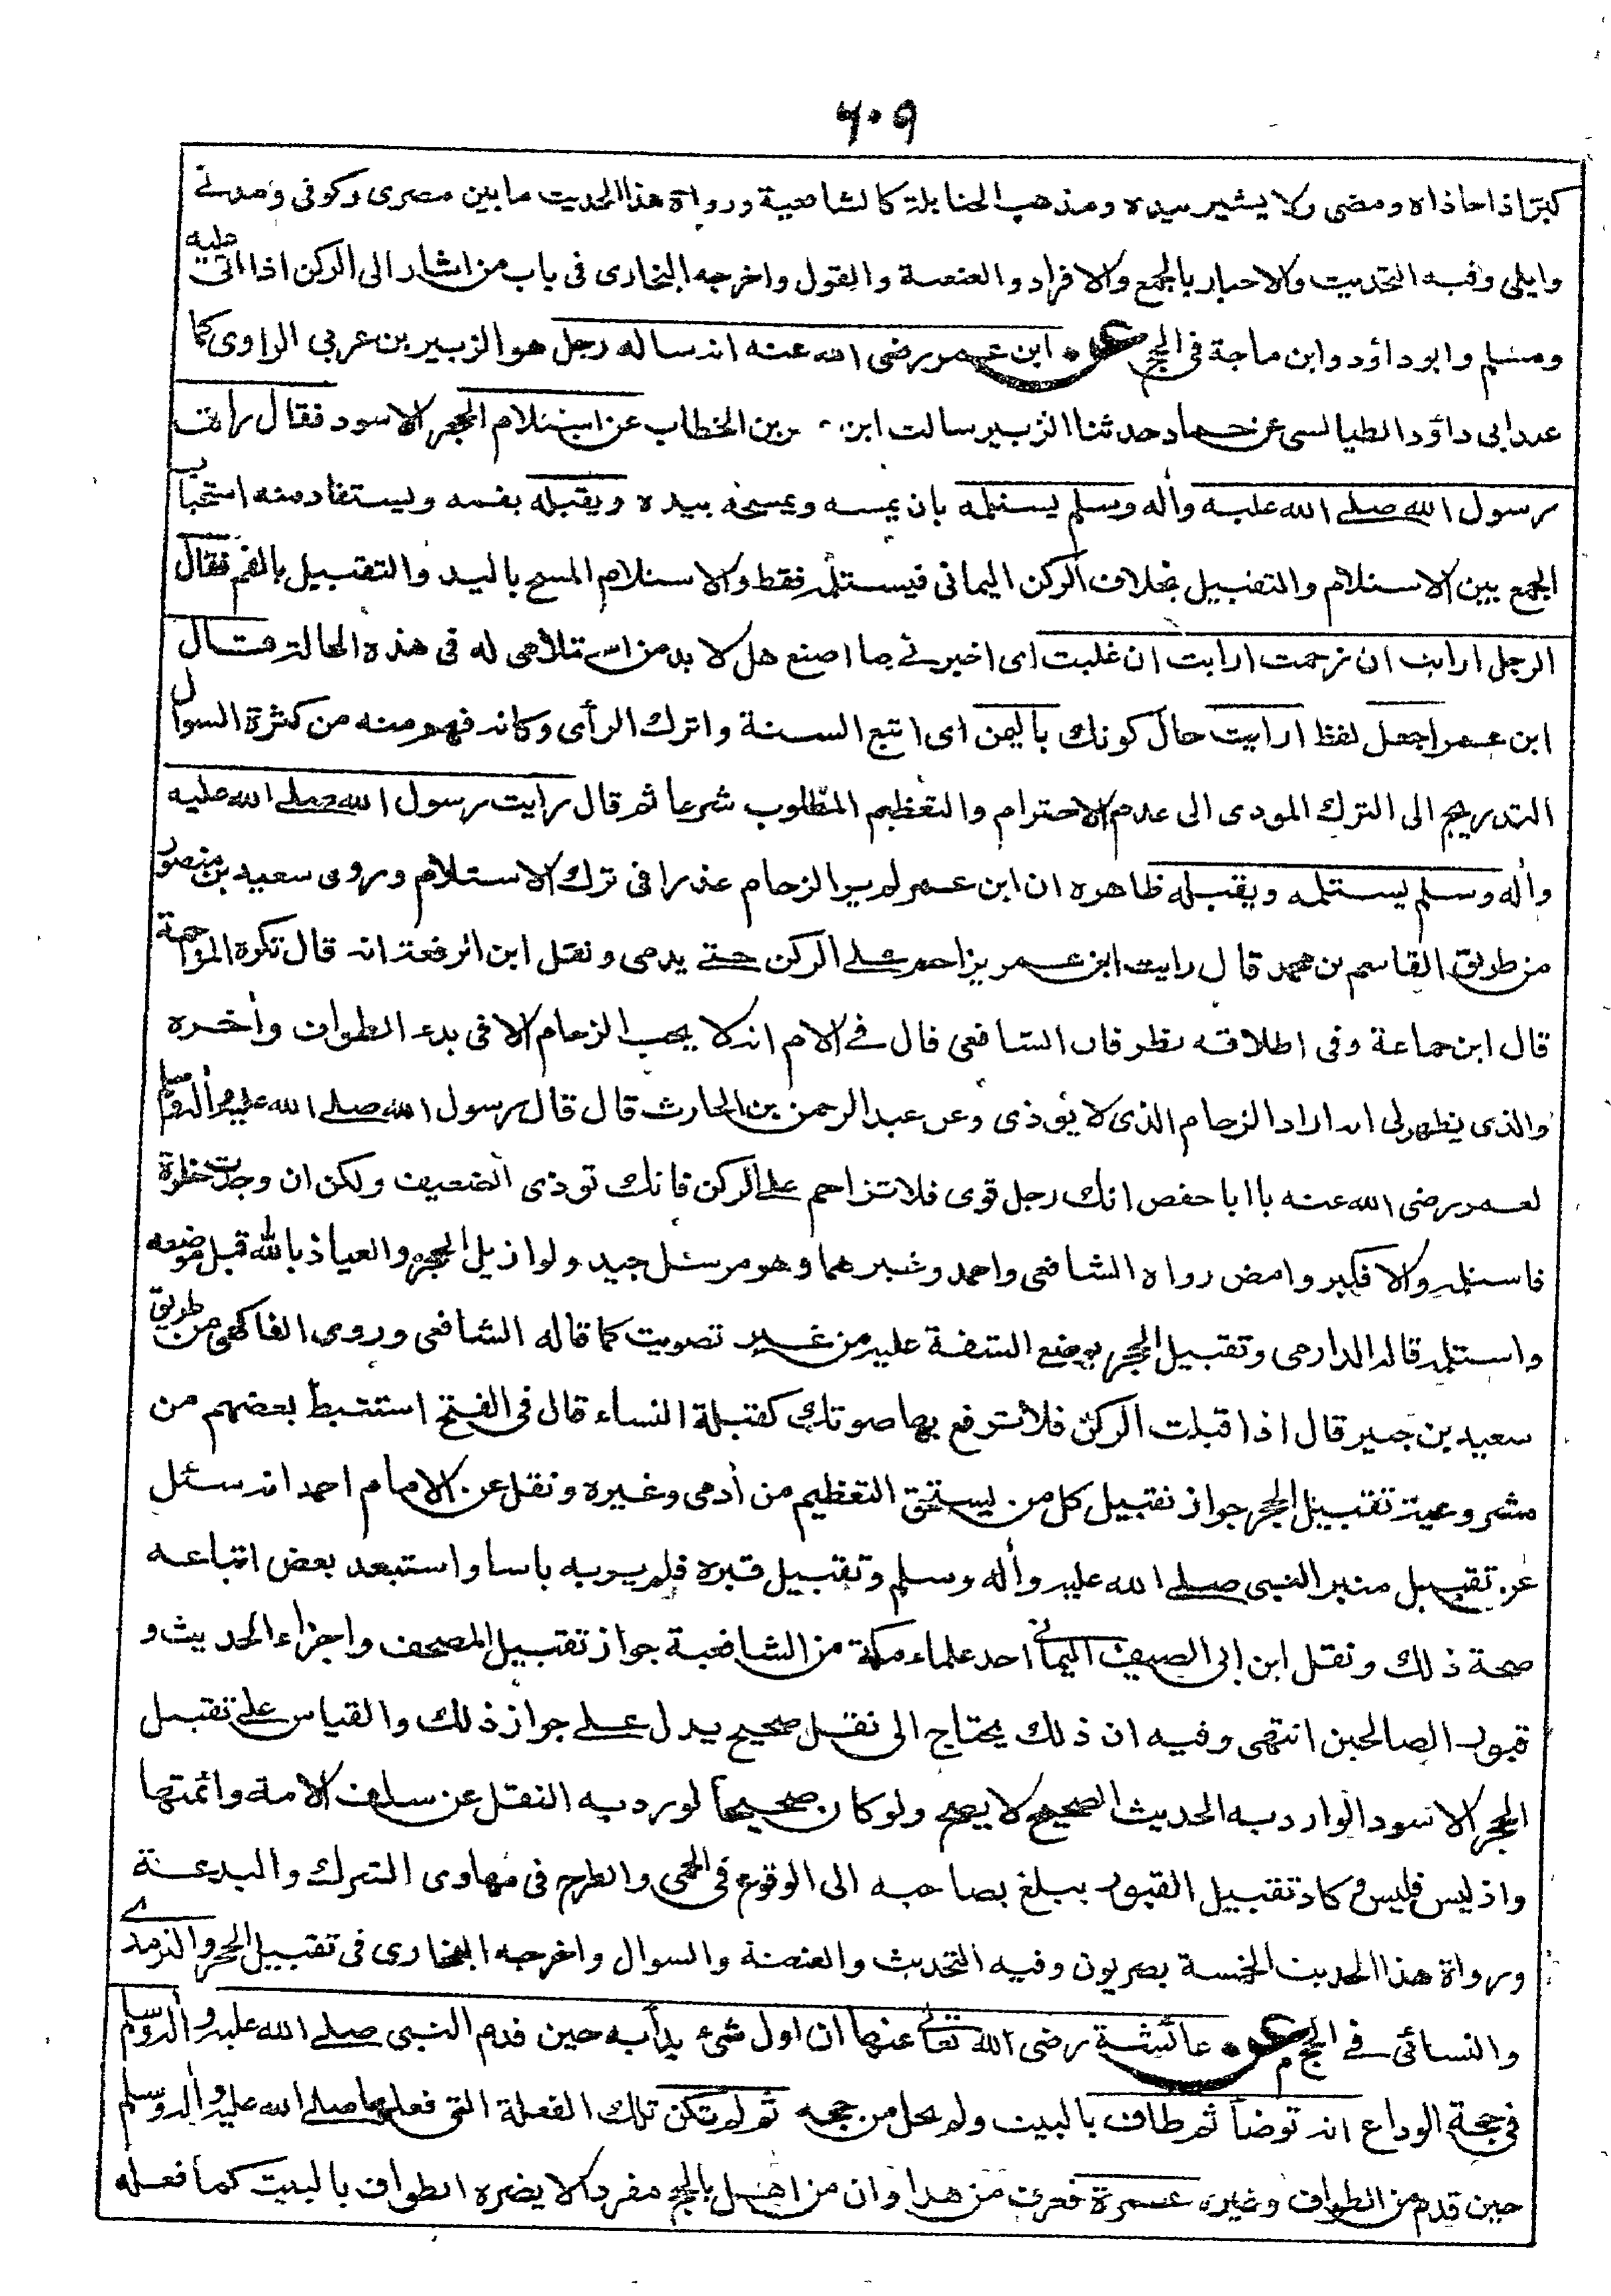 ٦٠٩
كبر اذا حاذاه ومضى ولا يشير بيده ومذهب الحنابلة كالشافعية ورواة هذا الحديث ما بين مصرى وكوفى ومدنى
وايلى وفيه التحديث والاخبار بالجمع والافراد والعنعنة والقول واخرجه البخارى فى باب من اشار الى الركن اذا اتى عليه
ومسلم وابو داؤد وابن ماجة فى الحج عن ابن عمر رضى الله عنه انه ساله رجل هو الزبير بن عربى الراوى كما
عند ابى داؤد الطيالسى عن حماد حدثنا الزبير سالت ابن بن الخطاب عن استلام الحجر الاسود فقال رايت
رسول الله صلے الله عليه وأله وسلم يستلمه بان يمسه ويمسحه بيده ويقبله بفمه ويستفاد منه استحباب
الجمع بين الاستلام والتقبيل بخلاف الركن اليمانى فيستلمه فقط والاستلام المسح باليد والتقبيل بالفم فقال
الرجل ارايت ان زحمت ارايت ان غلبت اى اخبرنے ما اصنع هل لا بد من استلامى له فى هذه الحالة فقال
ابن عمر اجعل لفظ ارايت حال كونك باليمن اى اتبع السنة واترك الرأى وكانه فهم منه من كثرة السوال
التدريج الى الترك المودى الى عدم الاحترام والتعظيم المطلوب شرعا ثم قال رايت رسول الله صلے الله عليه
وأله وسلم يستلمه ويقبله ظاهره ان ابن عمر لم ير الزحام عذرا فى ترك الاستلام وروى سعيد بن منصور
من طريق القاسم بن محمد قال رايت ابن عمر يزاحم علے الركن حتے يدمى ونقل ابن الرفعة انه قال تكره المزاحمة
قال ابن جماعة وفى اطلاقه نظر فان الشافعى قال فے الام انه لا يحب الزحام الا فى بدء الطواف وأخره
والذى يظهر لى انه اراد الزحام الذى لا يؤذى وعن عبد الرحمن بن الحارث قال قال رسول الله صلے الله عليه وأله وسلم
لعمر رضى الله عنه يا ابا حفص انك رجل قوى فلا تزاحم علے الركن فانك توذى الضعيف ولكن ان وجدت خلوة
فاستلمه والا فكبر وامض رواه الشافعى واحمد وغيرهما وهو مرسل جيد ولو ازيل الحجر والعياذ بالله قبل موضعه
واستلمه قاله الدارمى وتقبيل الحجر بوضع الشفة عليه من غير تصويت كما قاله الشافعى وروى الفاكهى من طريق
سعيد بن جبير قال اذا قبلت الركن فلا ترفع بها صوتك كقبلة النساء قال فى الفتح استنبط بعضهم من
مشروعية تقبيل الحجر جواز تقبيل كل من يستحق التعظيم من أدمى وغيره ونقل عن الامام احمد انه سئل
عن تقبيل منبر النبى صلے الله عليه وأله وسلم وتقبيل قبره فلم ير به باسا واستبعد بعض اتباعه
صحة ذلك ونقل ابن ابى الصيف اليمانے احد علماء مكة من الشافعية جواز تقبيل المصحف واجزاء الحديث و
قبور الصالحين انتهى وفيه ان ذلك يحتاج الى نقل صحيح يدل علے جواز ذلك والقياس علے تقبيل
الحجر الاسود الوارد به الحديث الصحيح لا يصح ولو كان صحيحا لورد به النقل عن سلف الامة وائمتها
واذ ليس فليس وكاد تقبيل القبور يبلغ بصاحبه الى الوقوع فى الحمى والطرح فى مهاوى الشرك والبدعة
ورواة هذا الحديث الخمسة بصريون وفيه التحديث والعنعنة والسوال واخرجه البخارى فى تقبيل الحجر والترمذے
والنسائى فے الحج عن عائشة رضى الله تعالے عنها ان اول شىء بدأ به حين قدم النبى صلے الله عليه وأله وسلم
فى حجة الوداع انه توضأ ثم طاف بالبيت ولم يحل من حجه ثم لم تكن تلك الفعلة التى فعلها صلے الله عليه وأله وسلم
حين قدم من الطواف وغيره عمرة فعرف من هذا وان من اهل بالحج مفردا لا يضره الطواف بالبيت كما فعله